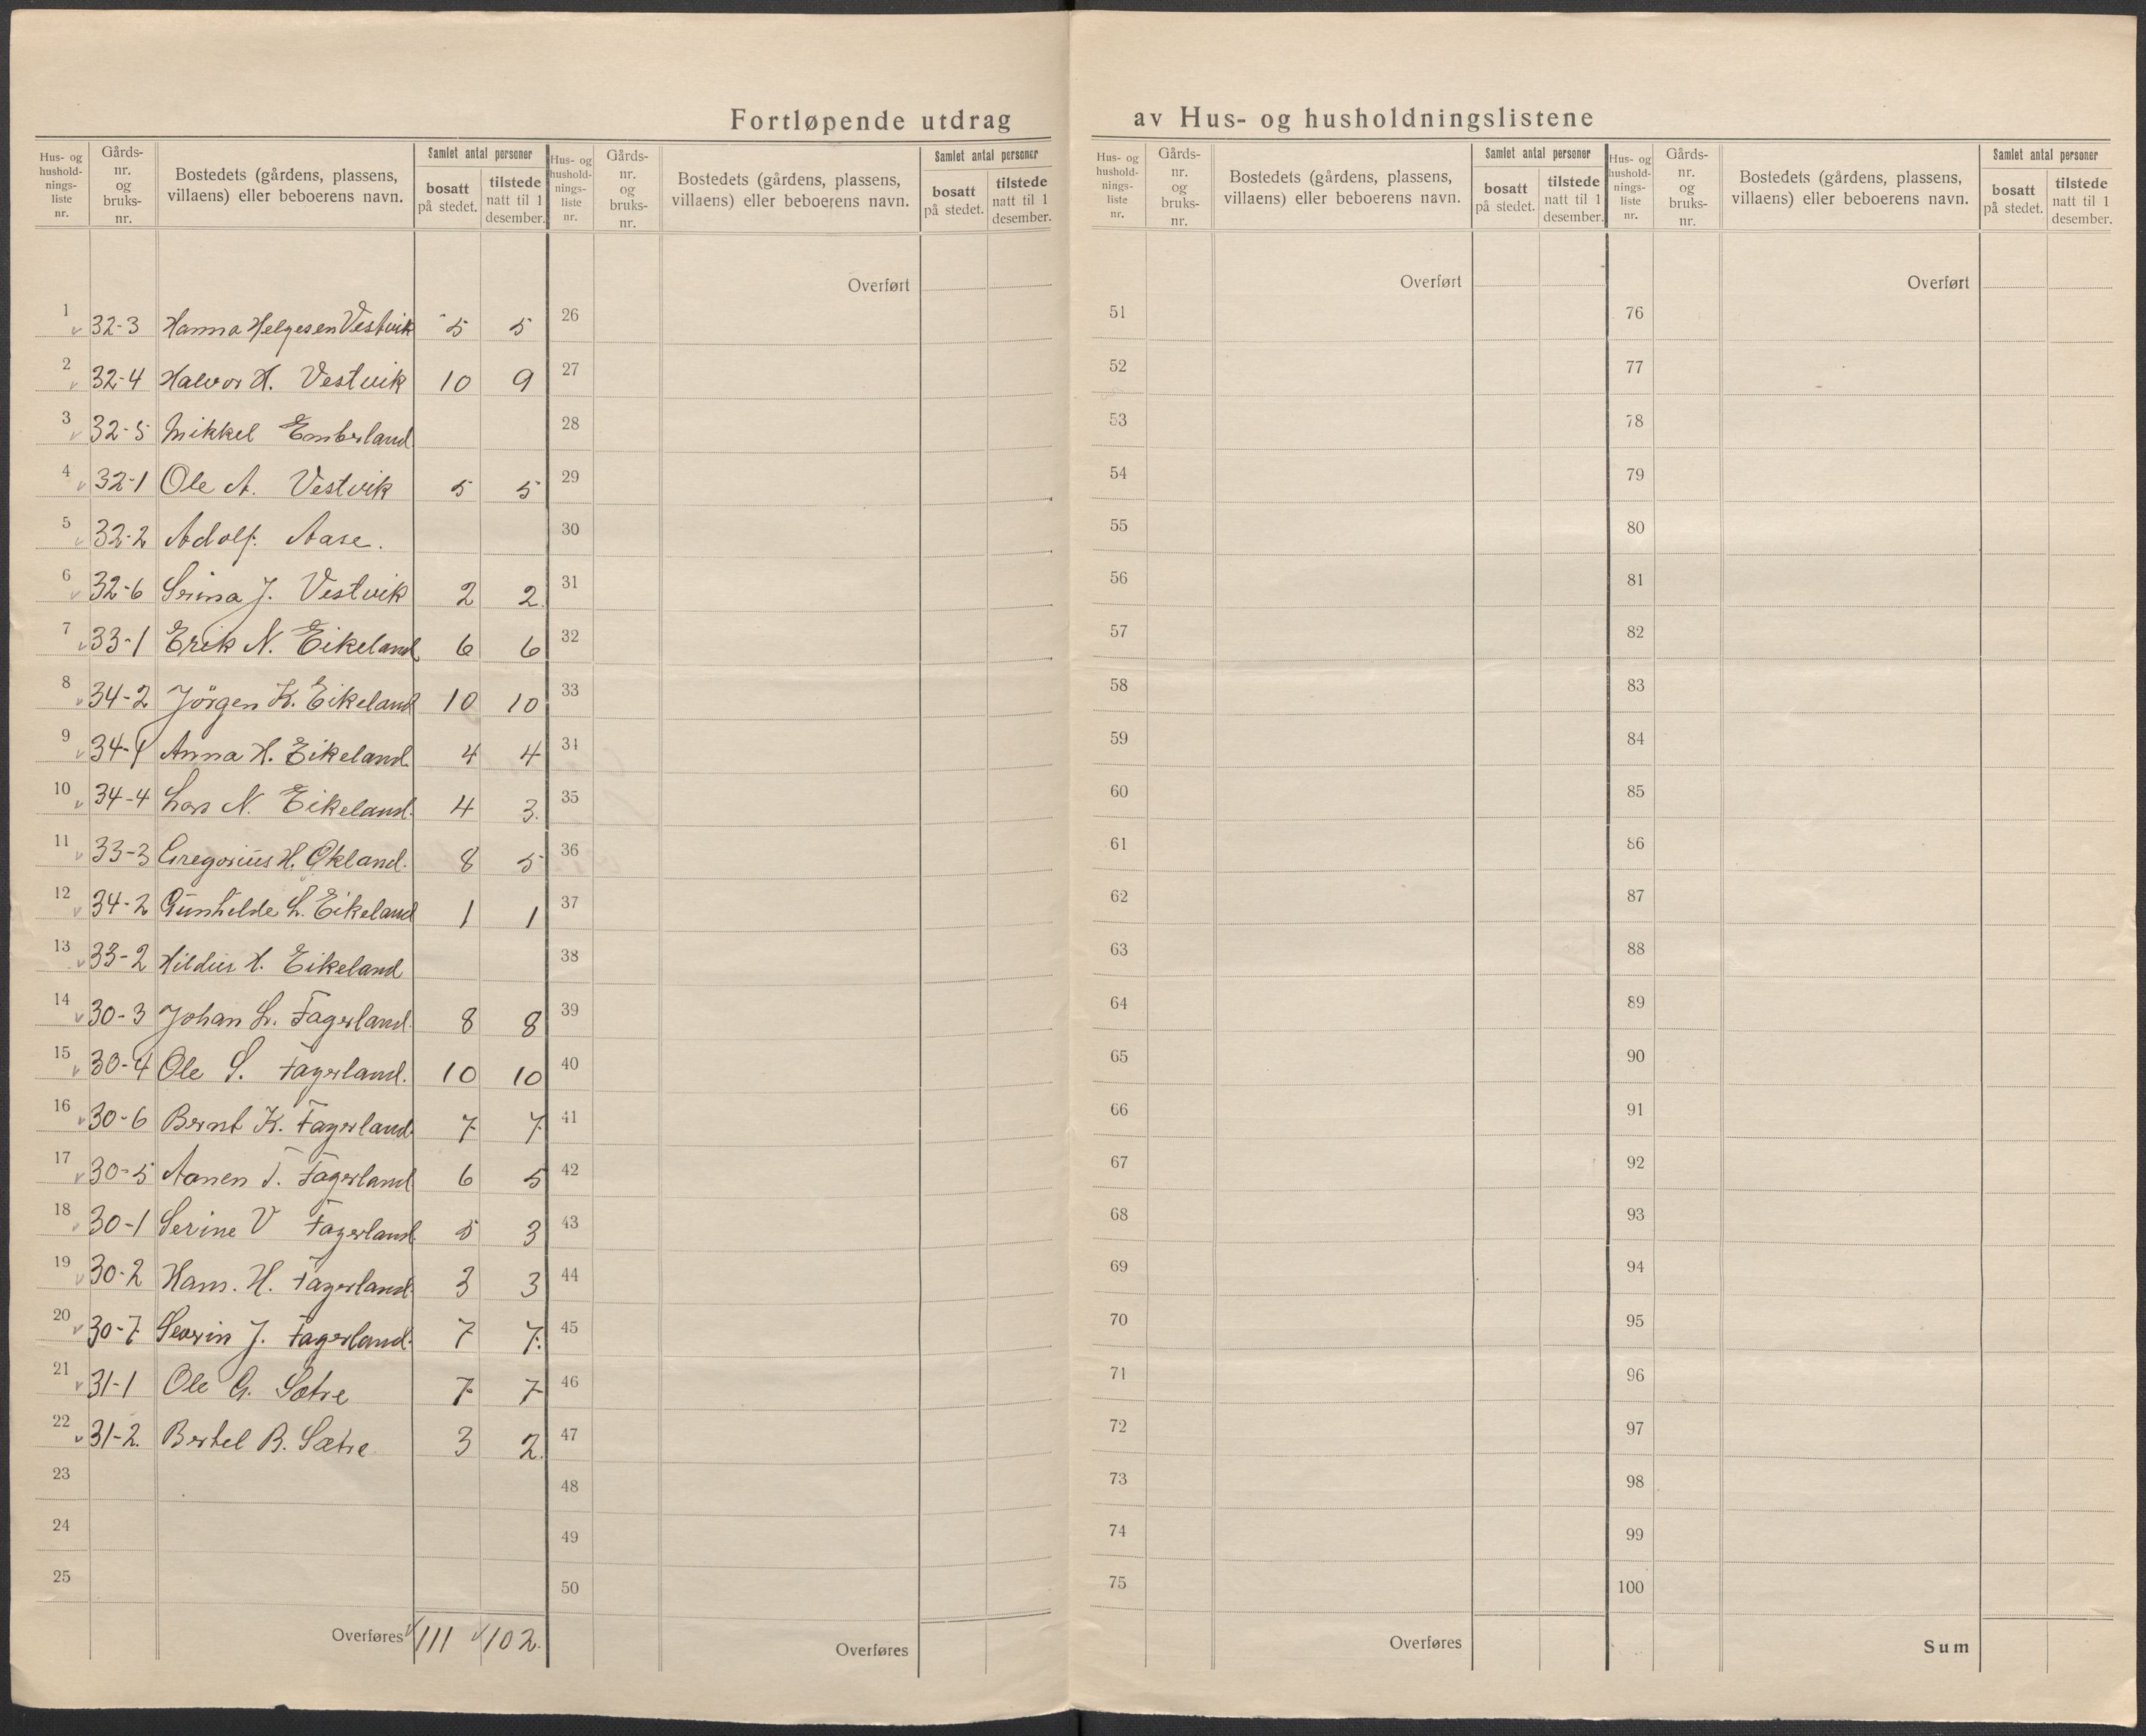 Fortløpende utdrag av Hus- og husholdningslistene
Hus- og hushold-nings-liste nr. Gårds-nr. og bruks-nr. Bostedets (gårdens, plassens, villaens) eller beboerens navn. Samlet antal personer bosatt på stedet. tilstede natt til 1 desember.
Hus- og hushold-nings-liste nr. Gårds-nr. og bruks-nr. Bostedets (gårdens, plassens, villaens) eller beboerens navn. Samlet antal personer bosatt på stedet. tilstede natt til 1 desember.
Hus- og hushold-nings-liste nr. Gårds-nr. og bruks-nr. Bostedets (gårdens, plassens, villaens) eller beboerens navn. Samlet antal personer bosatt på stedet. tilstede natt til 1 desember.
Hus- og hushold-nings-liste nr. Gårds-nr. og bruks-nr. Bostedets (gårdens, plassens, villaens) eller beboerens navn. Samlet antal personer bosatt på stedet. tilstede natt til 1 desember.
Overført Overført Overført
1 32-3 Hanna Helgesen Vestvik 5 5 26 51 76
2 32-4 Halvor H. Vestvik 10 9 27 52 77
3 32-5 Mikkel Emberland 28 53 78
4 32-1 Ole A. Vestvik 5 5 29 54 79
5 32-2 Adolf. Aase. 30 55 80
6 32-6 Serina J. Vestvik 2 2 31 56 81
7 33-1 Erik N. Eikeland 6 6 32 57 82
8 34-2 Jörgen K. Eikeland 10 10 33 58 83
9 34-1 Anna H. Eikeland 4 4 34 59 84
10 34-4 Lars N. Eikeland. 4 3. 35 60 85
11 33-3 Gregorius H. Økland. 8 5 36 61 86
12 34-2 Gunhilde L. Eikeland 1 1 37 62 87
13 33-2 H. Eikeland 38 63 88
14 30-3 Johan L. Fagerland. 8 8 39 64 89
15 30-4 Ole S. Fagerland. 10 10 40 65 90
16 30-6 Bernt K. Fagerland 7 7 41 66 91
17 30-5 Aanen T. Fagerland 6 5 42 67 92
18 30-1 Serine V Fagerland. 5 3 43 68 93
19 30-2 Hans. H. Fagerland. 3 3 44 69 94
20 30-7 Severin J. Fagerland. 7 7. 45 70 95
21 31-1 Ole G. Sætre 7 7 46 71 96
22 31-2. Bertel B. Sætre. 3 2. 47 72 97
23 48 73 98
24 49 74 99
25 50 75 100
Overføres 111 102. Overføres Overføres Sum